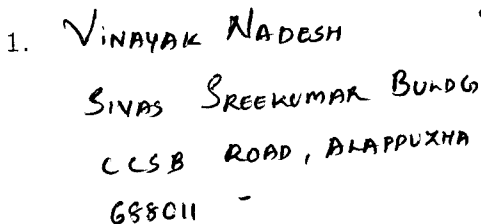 1. VINAYAK NADESH
SIVAS SREEKUMAR BULDG
CCSB ROAD, ALAPPUZHA
688011 -